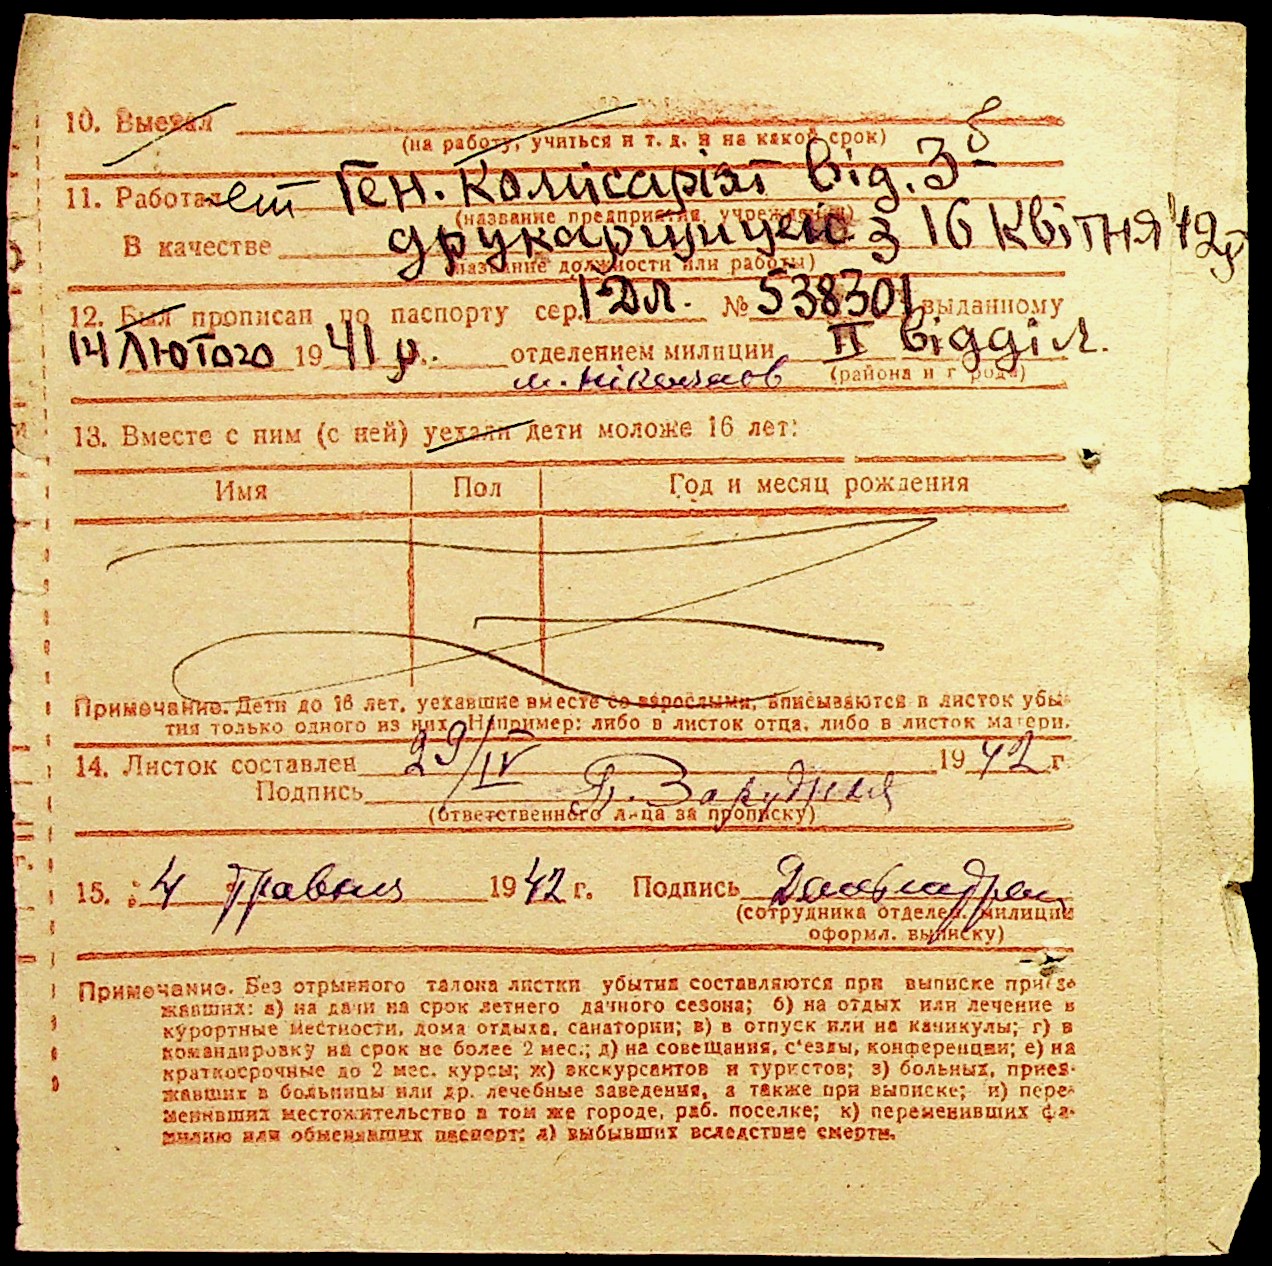 10. Выехал
(на работу, учиться и т. д. и на какой срок)
11. Работает Ген. Комісаріят від. 3б
(название предприятия, учреждения)
В качестве друкарщицею з 16 Квітня 42р
(название должности или работы)
12. Был прописан по паспорту сер. І Дл. № 538301 выданному
14 Лютого 1941 р. отделением милиции ІІ відділ.
м. Ніколаєв (района и города)
13. Вместе с ним (с ней) уехали дети моложе 16 лет:
Имя Пол Год и месяц рождения
Примечание. Дети до 16 лет, уехавшие вместе со взрослыми, вписываются в листок убы-
тия только одного из них. Например: либо в листок отца, либо в листок матери.
14. Листок составлен 29/IV 1942 г.
Подпись Зарудная
(ответственного лица за прописку)
15. 4 Травня 1942 г. Подпись
(сотрудника отделен. милиции
оформл. выписку)
Примечание. Без отрывного талона листки убытия составляются при выписке приез-
жавших: а) на дачи на срок летнего дачного сезона; б) на отдых или лечение в
курортные местности, дома отдыха, санатории; в) в отпуск или на каникулы; г) в
командировку на срок не более 2 мес.; д) на совещания, с'езды, конференции; е) на
краткосрочные до 2 мес. курсы; ж) экскурсантов и туристов; з) больных, приез-
жавших в больницы или др. лечебные заведения, а также при выписке; и) пере-
менивших местожительство в том же городе, раб. поселке; к) переменивших фа-
милию или обменявших паспорт; л) выбывших вследствие смерти.